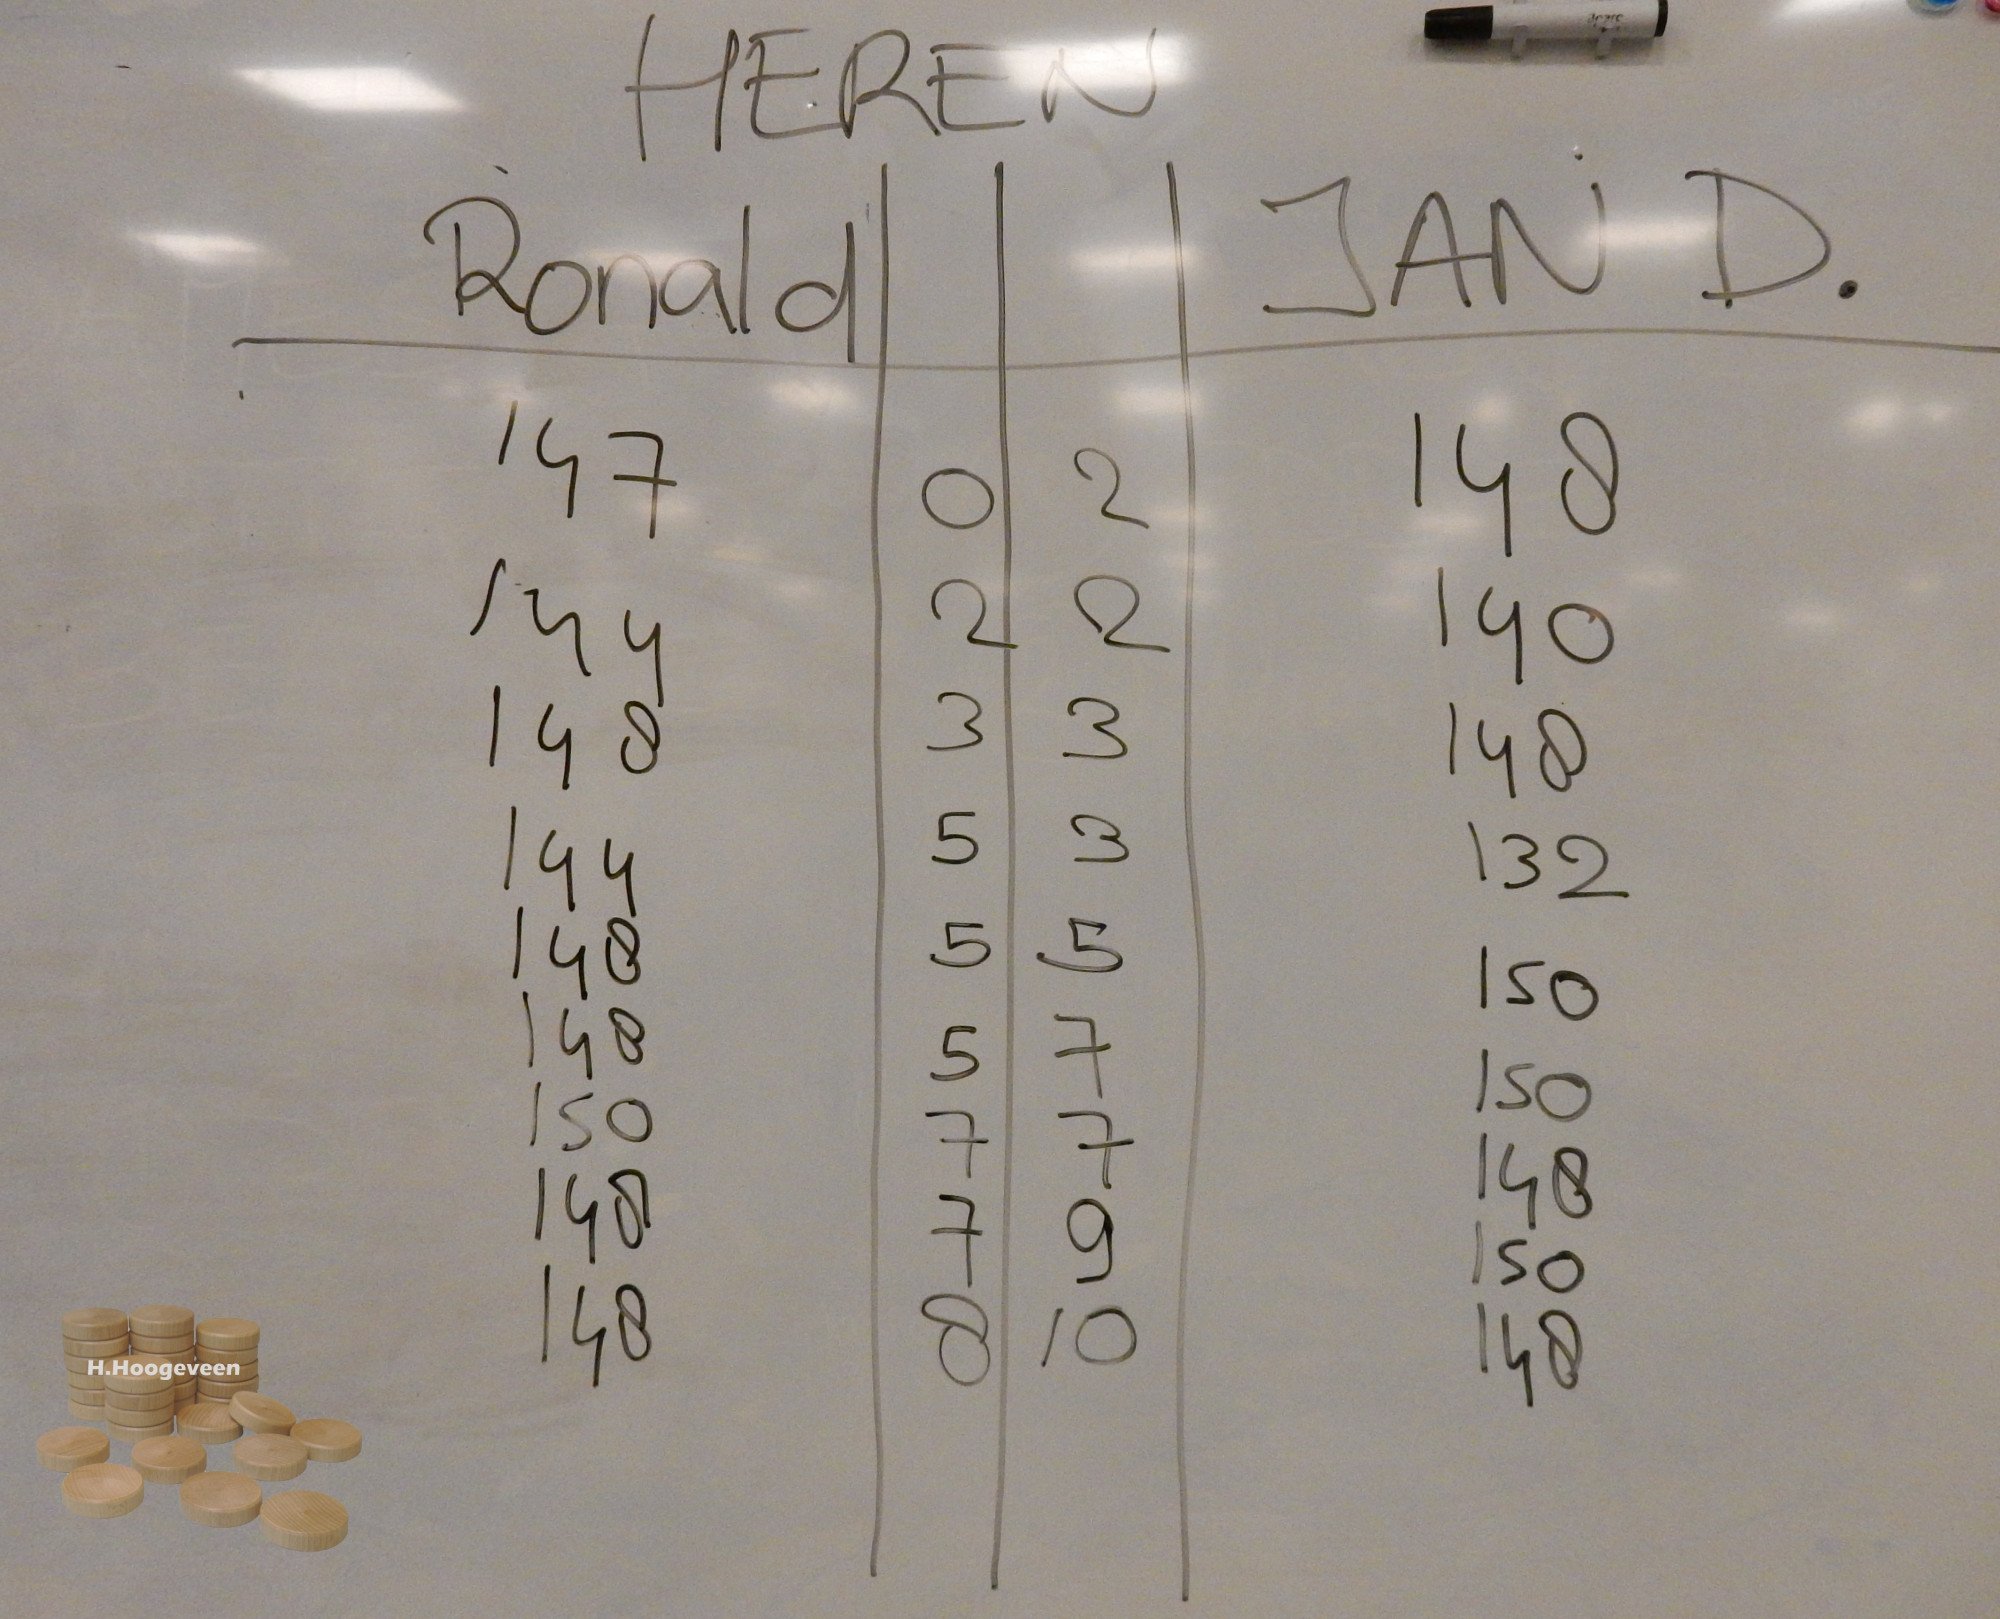 HEREN
Ronald JAN D.
147 0 2 148
144 2 2 140
148 3 3 148
144 5 3 132
148 5 5 150
148 5 7 150
150 7 7 148
148 7 9 150
148 8 10 148
H.Hoogeveen